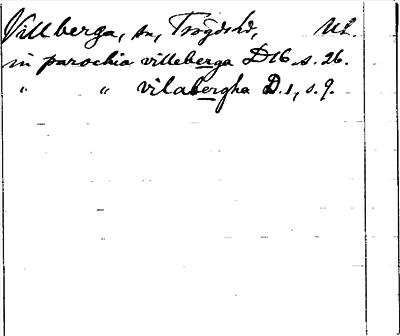 Villberga, sn, Trögds hd, Ul.
in parochia villeberga D16 s. 26.
" " vilabergha D.1, s. 9.